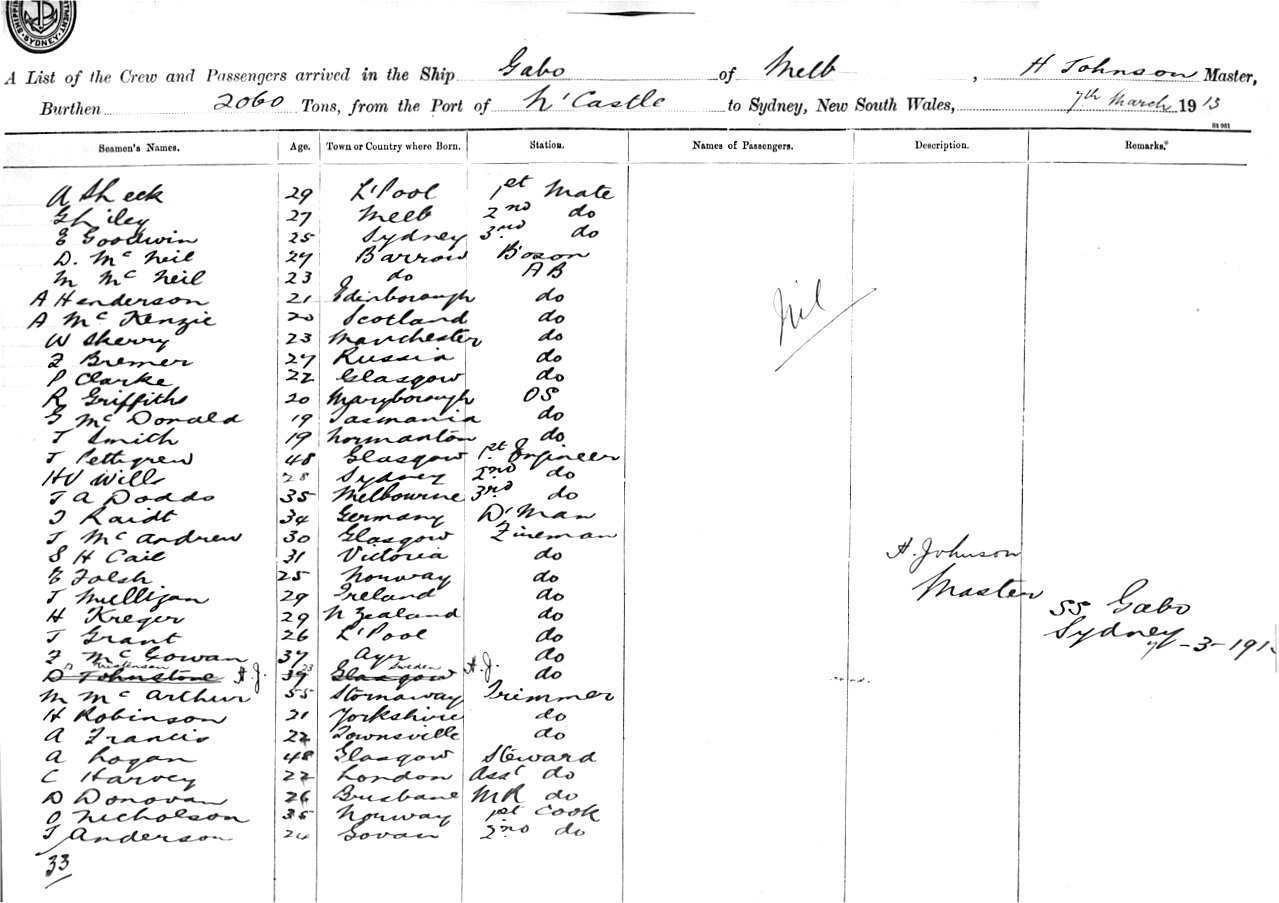 SYDNEY
A List of the Crew and Passengers arrived in the Ship Gabo of Melb, H Johnson Master,
Burthen 2060 Tons, from the Port of N'Castle to Sydney, New South Wales, 7th March 1913
St 951
Seamen's Names. Age. Town or Country where Born. Station. Names of Passengers. Description. Remarks.*
A Sheek 29 L'Pool 1st Mate
G 27 Melb 2nd do
E Goodwin 25 Sydney 3rd do
D. McNeil 27 Barrow B'oson
M McNeil 23 do AB
A Henderson 21 Edinborough do
A McKenzie 20 Scotland do
W Sherry 23 Manchester do
F Bremer 27 Russia do
P Clarke 22 Glasgow do
R Griffiths 20 Maryborough OS
G McDonald 19 Tasmania do
T Smith 19 Normanton do
J Pettigrew 48 Glasgow 1st Engineer
HV Wills 28 Sydney 2nd do
T A Dodds 35 Melbourne 3rd do
J Raidt 34 Germany D'Man
J McAndrew 30 Glasgow Fireman
S H Cail 31 Victoria do
E Folsh 25 Norway do
J Mulligan 29 Ireland do
H Kreger 29 N Zealand do
J Grant 26 L'Pool do
F McGowan 37 Ayr do
23 Sweden
D Johnstone A.J. 39 Glasgow A.J. do
M McArthur 55 Stornaway Trimmer
H Robinson 21 Yorkshire do
A Francis 22 Townsville do
A Logan 48 Glasgow Steward
C Harvey 22 London Asst do
D Donovan 26 Brisbane MR do
O Nicholson 35 Norway 1st Cook
J Anderson 24 Govan 2nd do
33
Nil
H. Johnson
Master
SS Gabo
Sydney
7-3-191